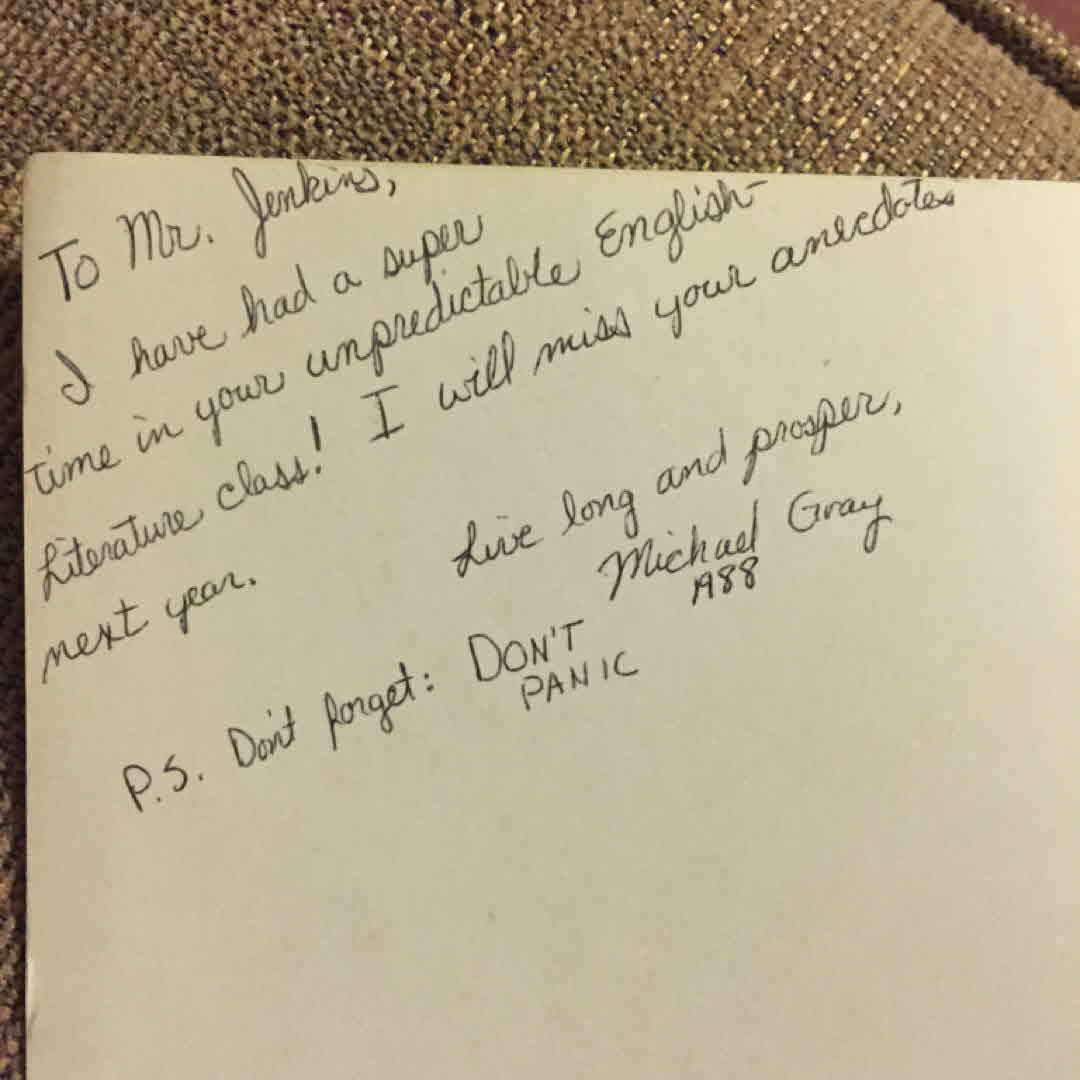 To Mr. Jenkins,
I have had a super
time in your unpredictable English-
Literature class! I will miss your anecdotes
next year.
Live long and prosper,
Michael Gray
1988
P.S. Don't forget: DON'T
PANIC